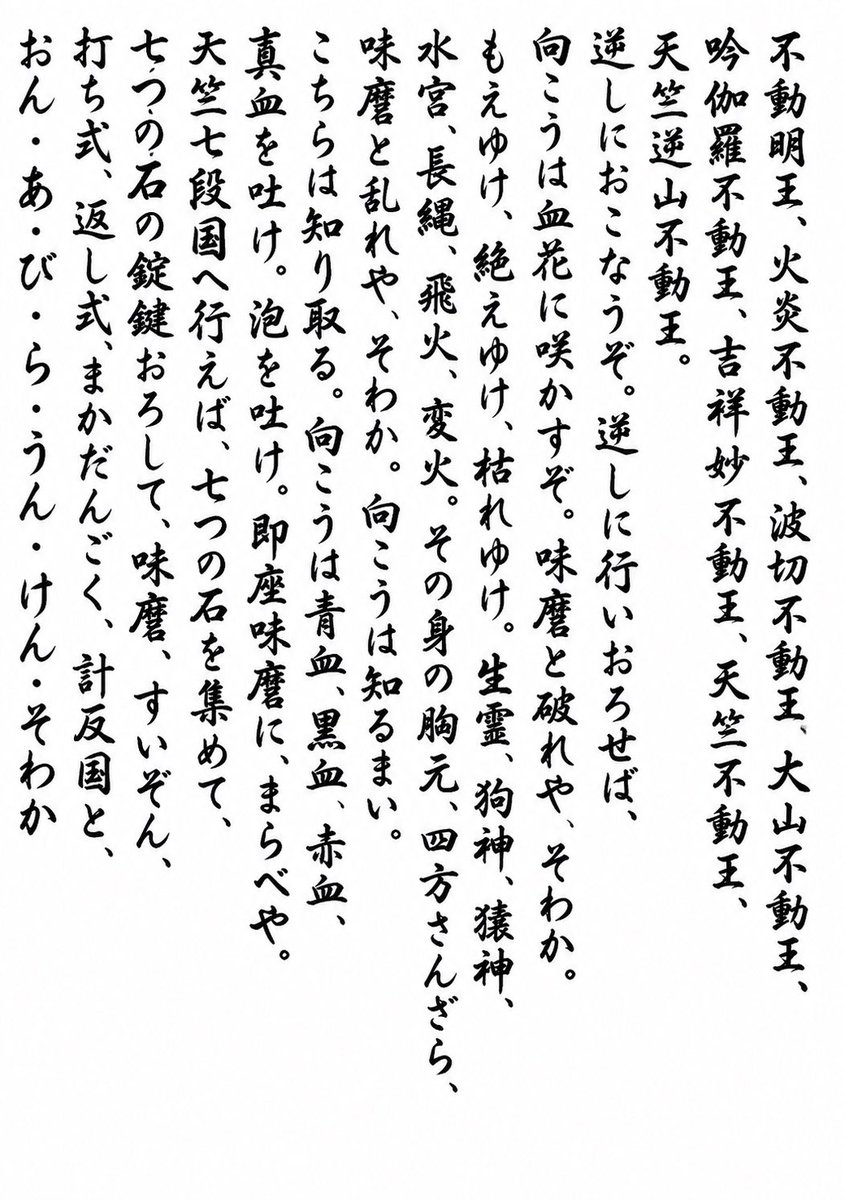 不動明王、火炎不動王、波切不動王、大山不動王、
吟伽羅不動王、吉祥妙不動王、天竺不動王、
天竺逆山不動王。
逆しにおこなうぞ。逆しに行いおろせば、
向こうは血花に咲かすぞ。味磨と破れや、そわか。
もえゆけ、絶えゆけ、枯れゆけ。生霊、狗神、猿神、
水宮、長縄、飛火、変火。その身の胸元、四方さんざら、
味磨と乱れや、そわか。向こうは知るまい。
こちらは知り取る。向こうは青血、黒血、赤血、
真血を吐け。泡を吐け。即座味磨に、まらべや。
天竺七段国へ行えば、七つの石を集めて、
七つの石の錠鍵おろして、味磨、すいぞん、
打ち式、返し式、まかだんごく、計反国と、
おん・あ・び・ら・うん・けん・そわか